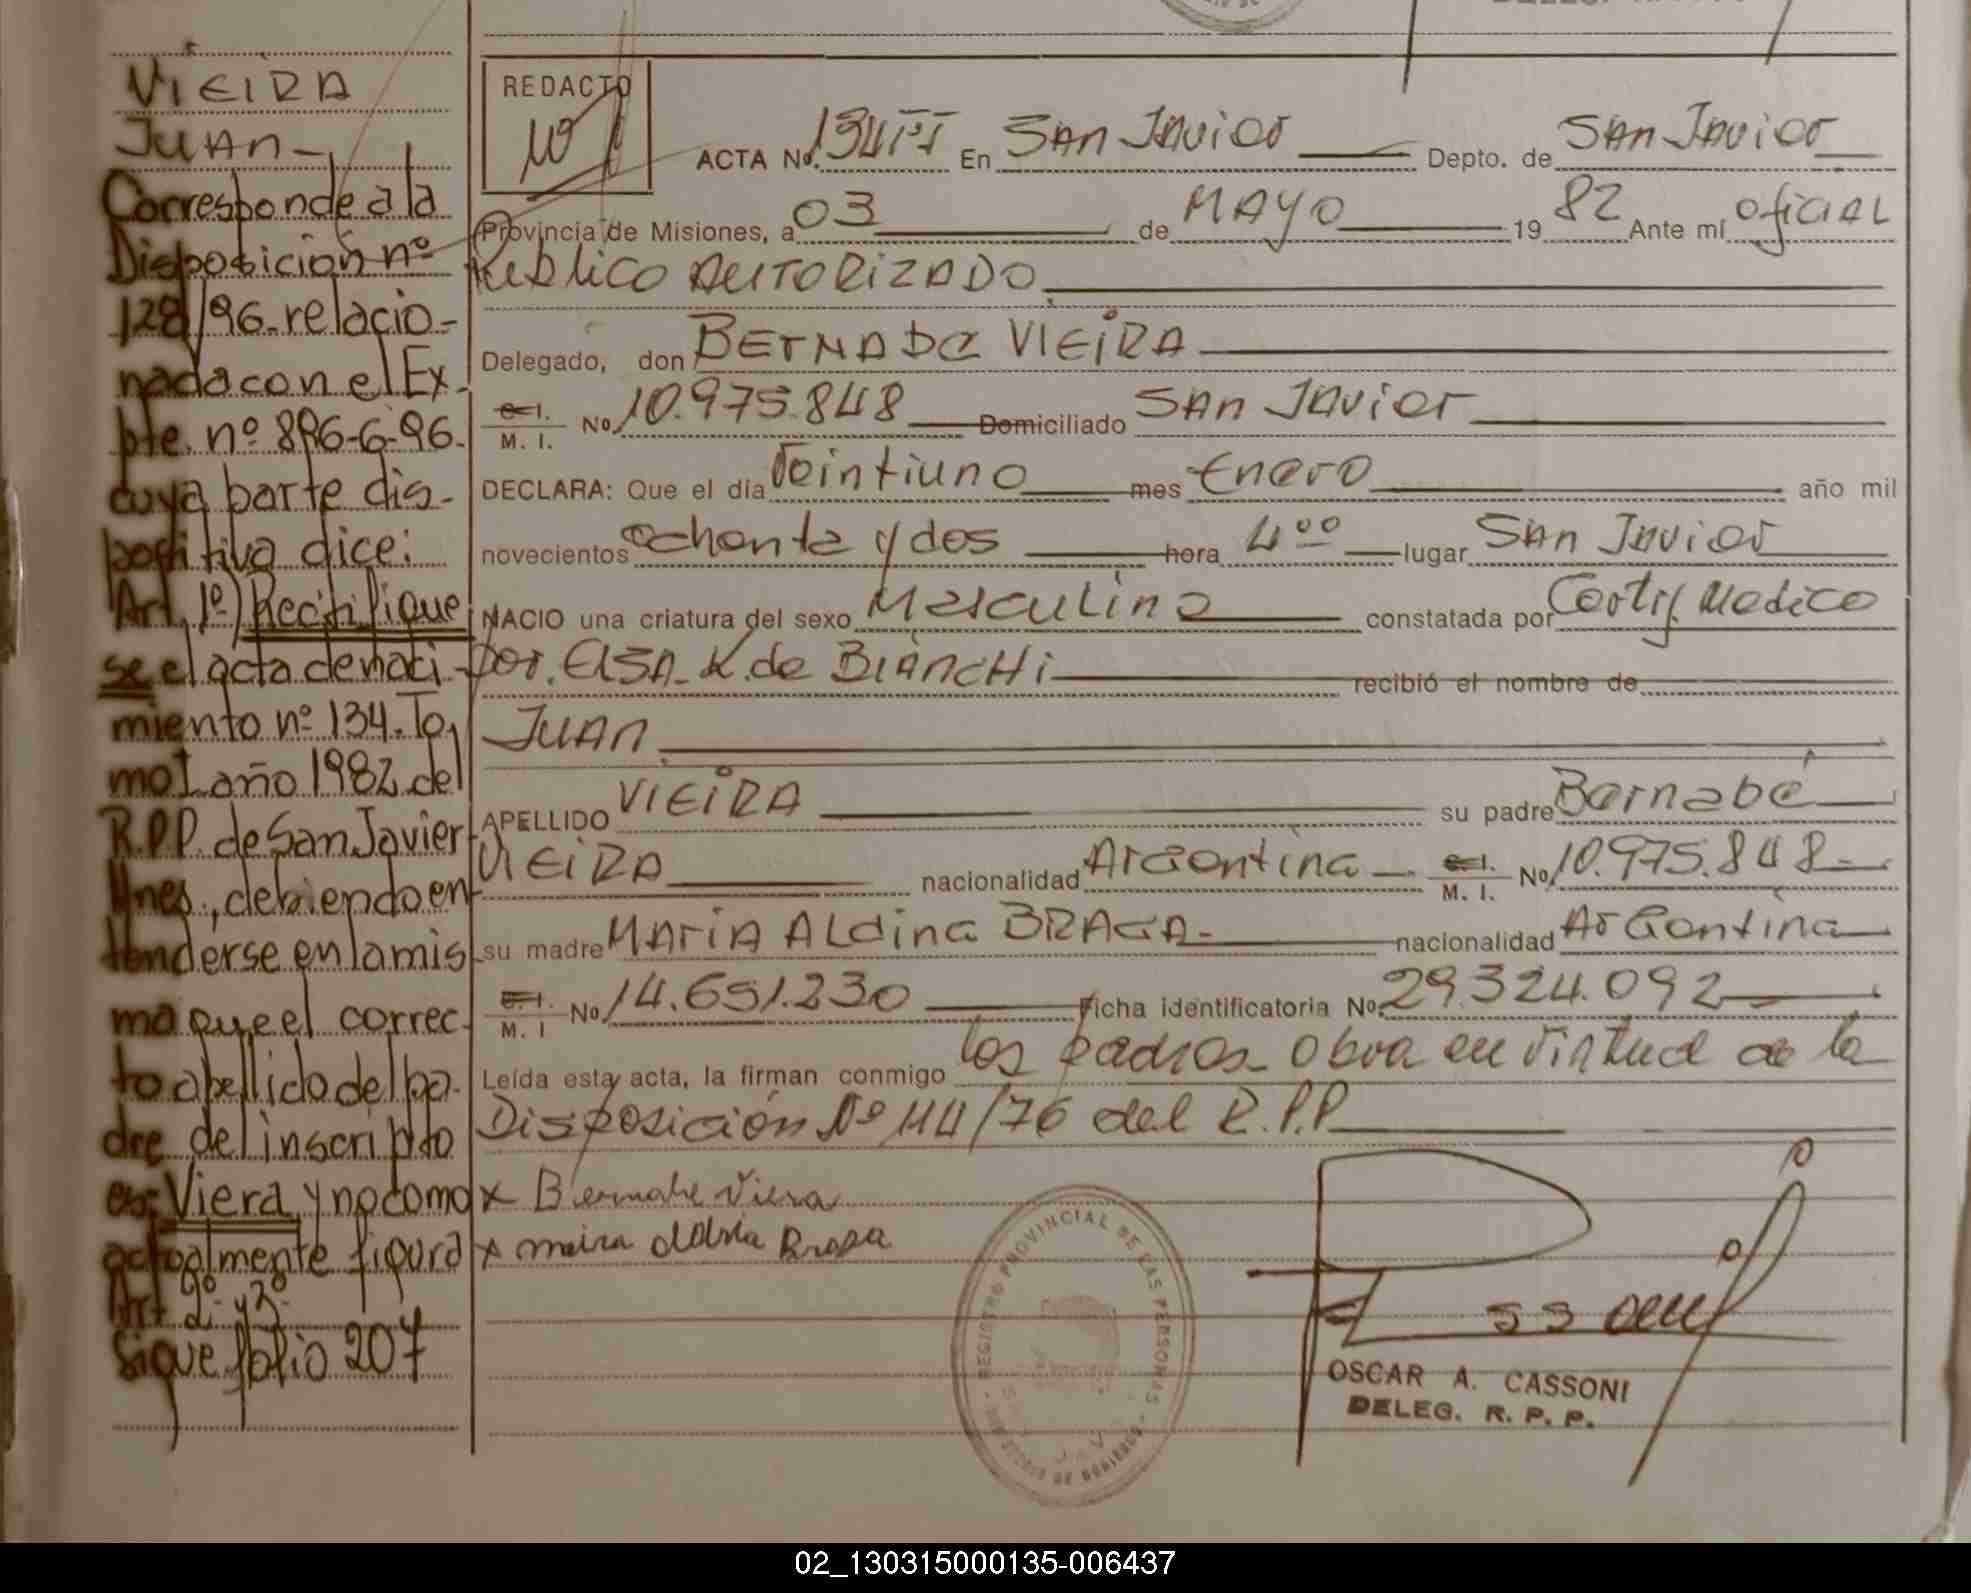 VIEIRA
JUAN-
Corresponde a la
Disposición nº
128/96 relacio-
nada con el Ex-
pte. nº 896-6-96.
cuya parte dis-
positiva dice:
Art. 1º) Rectifique
se el acta de naci-
miento nº 134. To
mo I año 1982 del
R.P.P. de San Javier
Mnes., debiendo en
tenderse en la mis
ma que el correc-
to apellido del pa-
dre del inscripto
es: Viera y no como
actualmente figura
Art 2º y 3º
Sigue folio 207
REDACTO
Nº 1
ACTA Nº 134 TºI En San Javier Depto. de San Javier
Provincia de Misiones, a 03 de MAYO 19 82 Ante mí oficial
Público AUTORIZADO
Delegado, don BERNABE VIEIRA
C. I. M. I. Nº 10.975.848 Domiciliado San Javier
DECLARA: Que el día Veintiuno mes Enero año mil
novecientos ochenta y dos hora 4ºº lugar San Javier
NACIO una criatura del sexo Masculino constatada por Certif. Medico
por. ELSA. K. de BIANCHI recibió el nombre de
JUAN
APELLIDO VIEIRA su padre Bernabé
VIEIRA nacionalidad Argentina C. I. M. I. Nº 10.975.848-
su madre MARIA ALdina BRAGA- nacionalidad Argentina
C. I. M. I Nº 14.651.230 Ficha identificatoria Nº 29.324.092
Leída esta acta, la firman conmigo los padres- Obra en virtud de la
Disposición Nº 44/76 del R.P.P.
x Bernabe Viera
x
REGISTRO PROVINCIAL DE LAS PERSONAS - MINISTERIO DE GOBIERNO -
OSCAR A. CASSONI
DELEG. R. P. P.
02_130315000135-006437